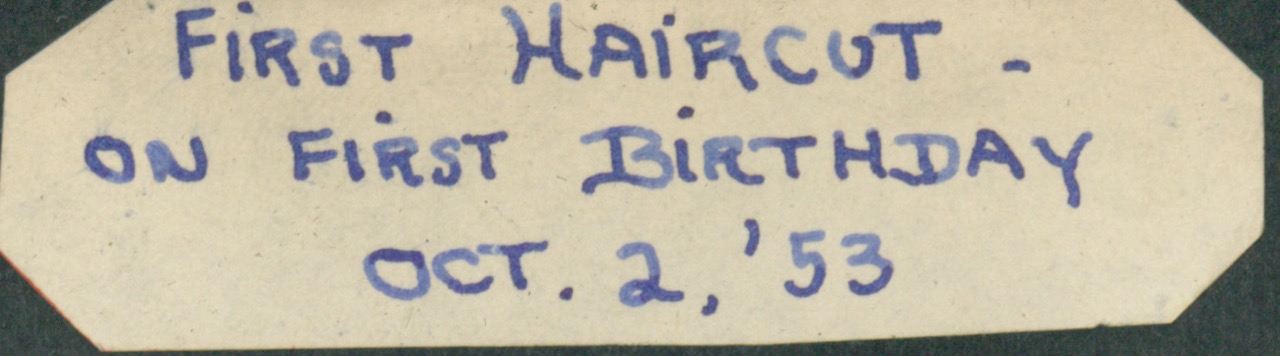 FIRST HAIRCUT -
ON FIRST BIRTHDAY
OCT. 2, '53